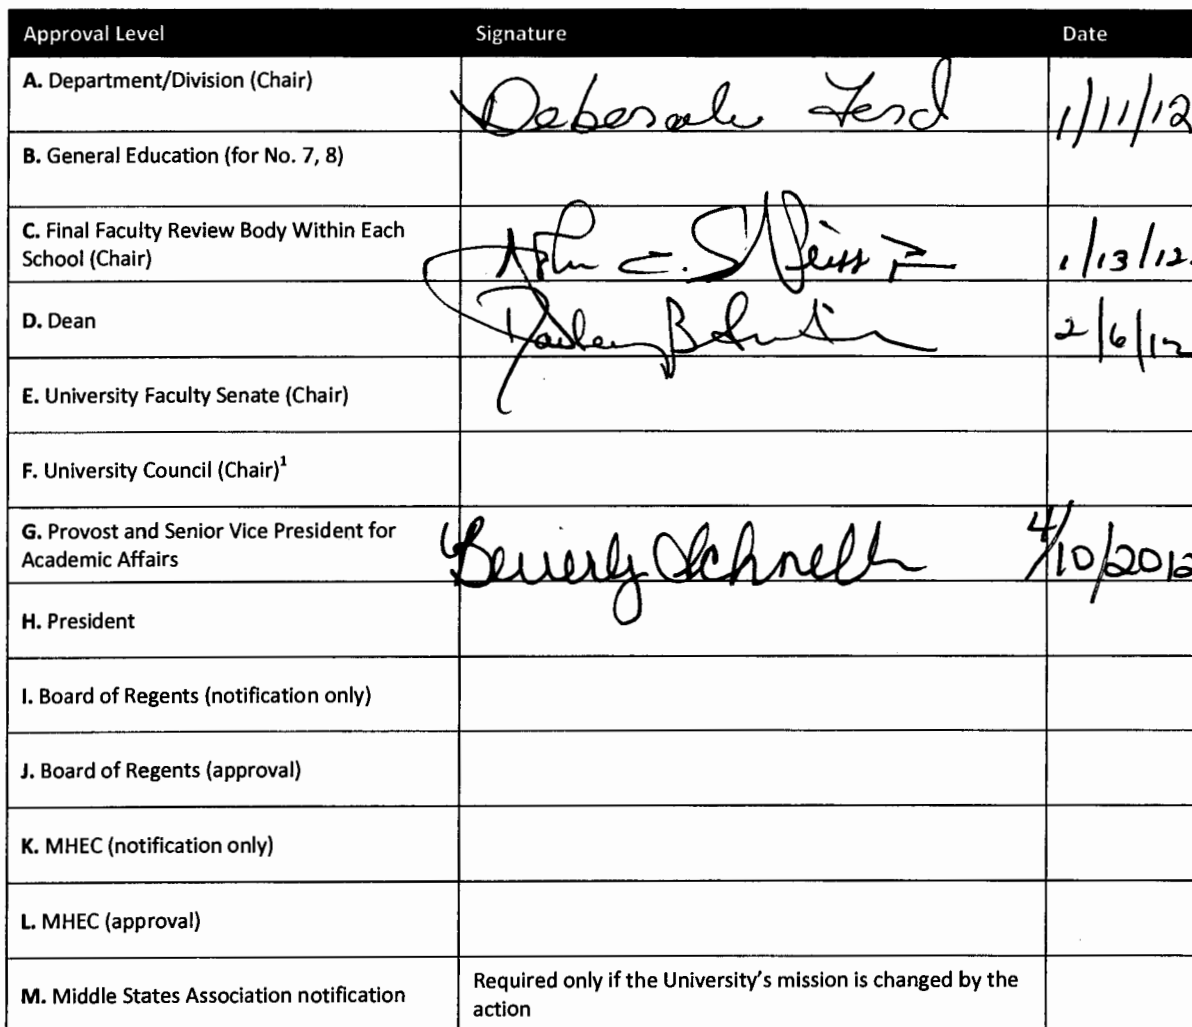 Approval Level Signature Date
A. Department/Division (Chair) Deborah Ford 1/11/12
B. General Education (for No. 7, 8)
C. Final Faculty Review Body Within Each
School (Chair) John C. Weiss 1/13/12
D. Dean 2/6/12
E. University Faculty Senate (Chair)
F. University Council (Chair)¹
G. Provost and Senior Vice President for
Academic Affairs Beverly Schnell 4/10/2012
H. President
I. Board of Regents (notification only)
J. Board of Regents (approval)
K. MHEC (notification only)
L. MHEC (approval)
M. Middle States Association notification Required only if the University's mission is changed by the
action